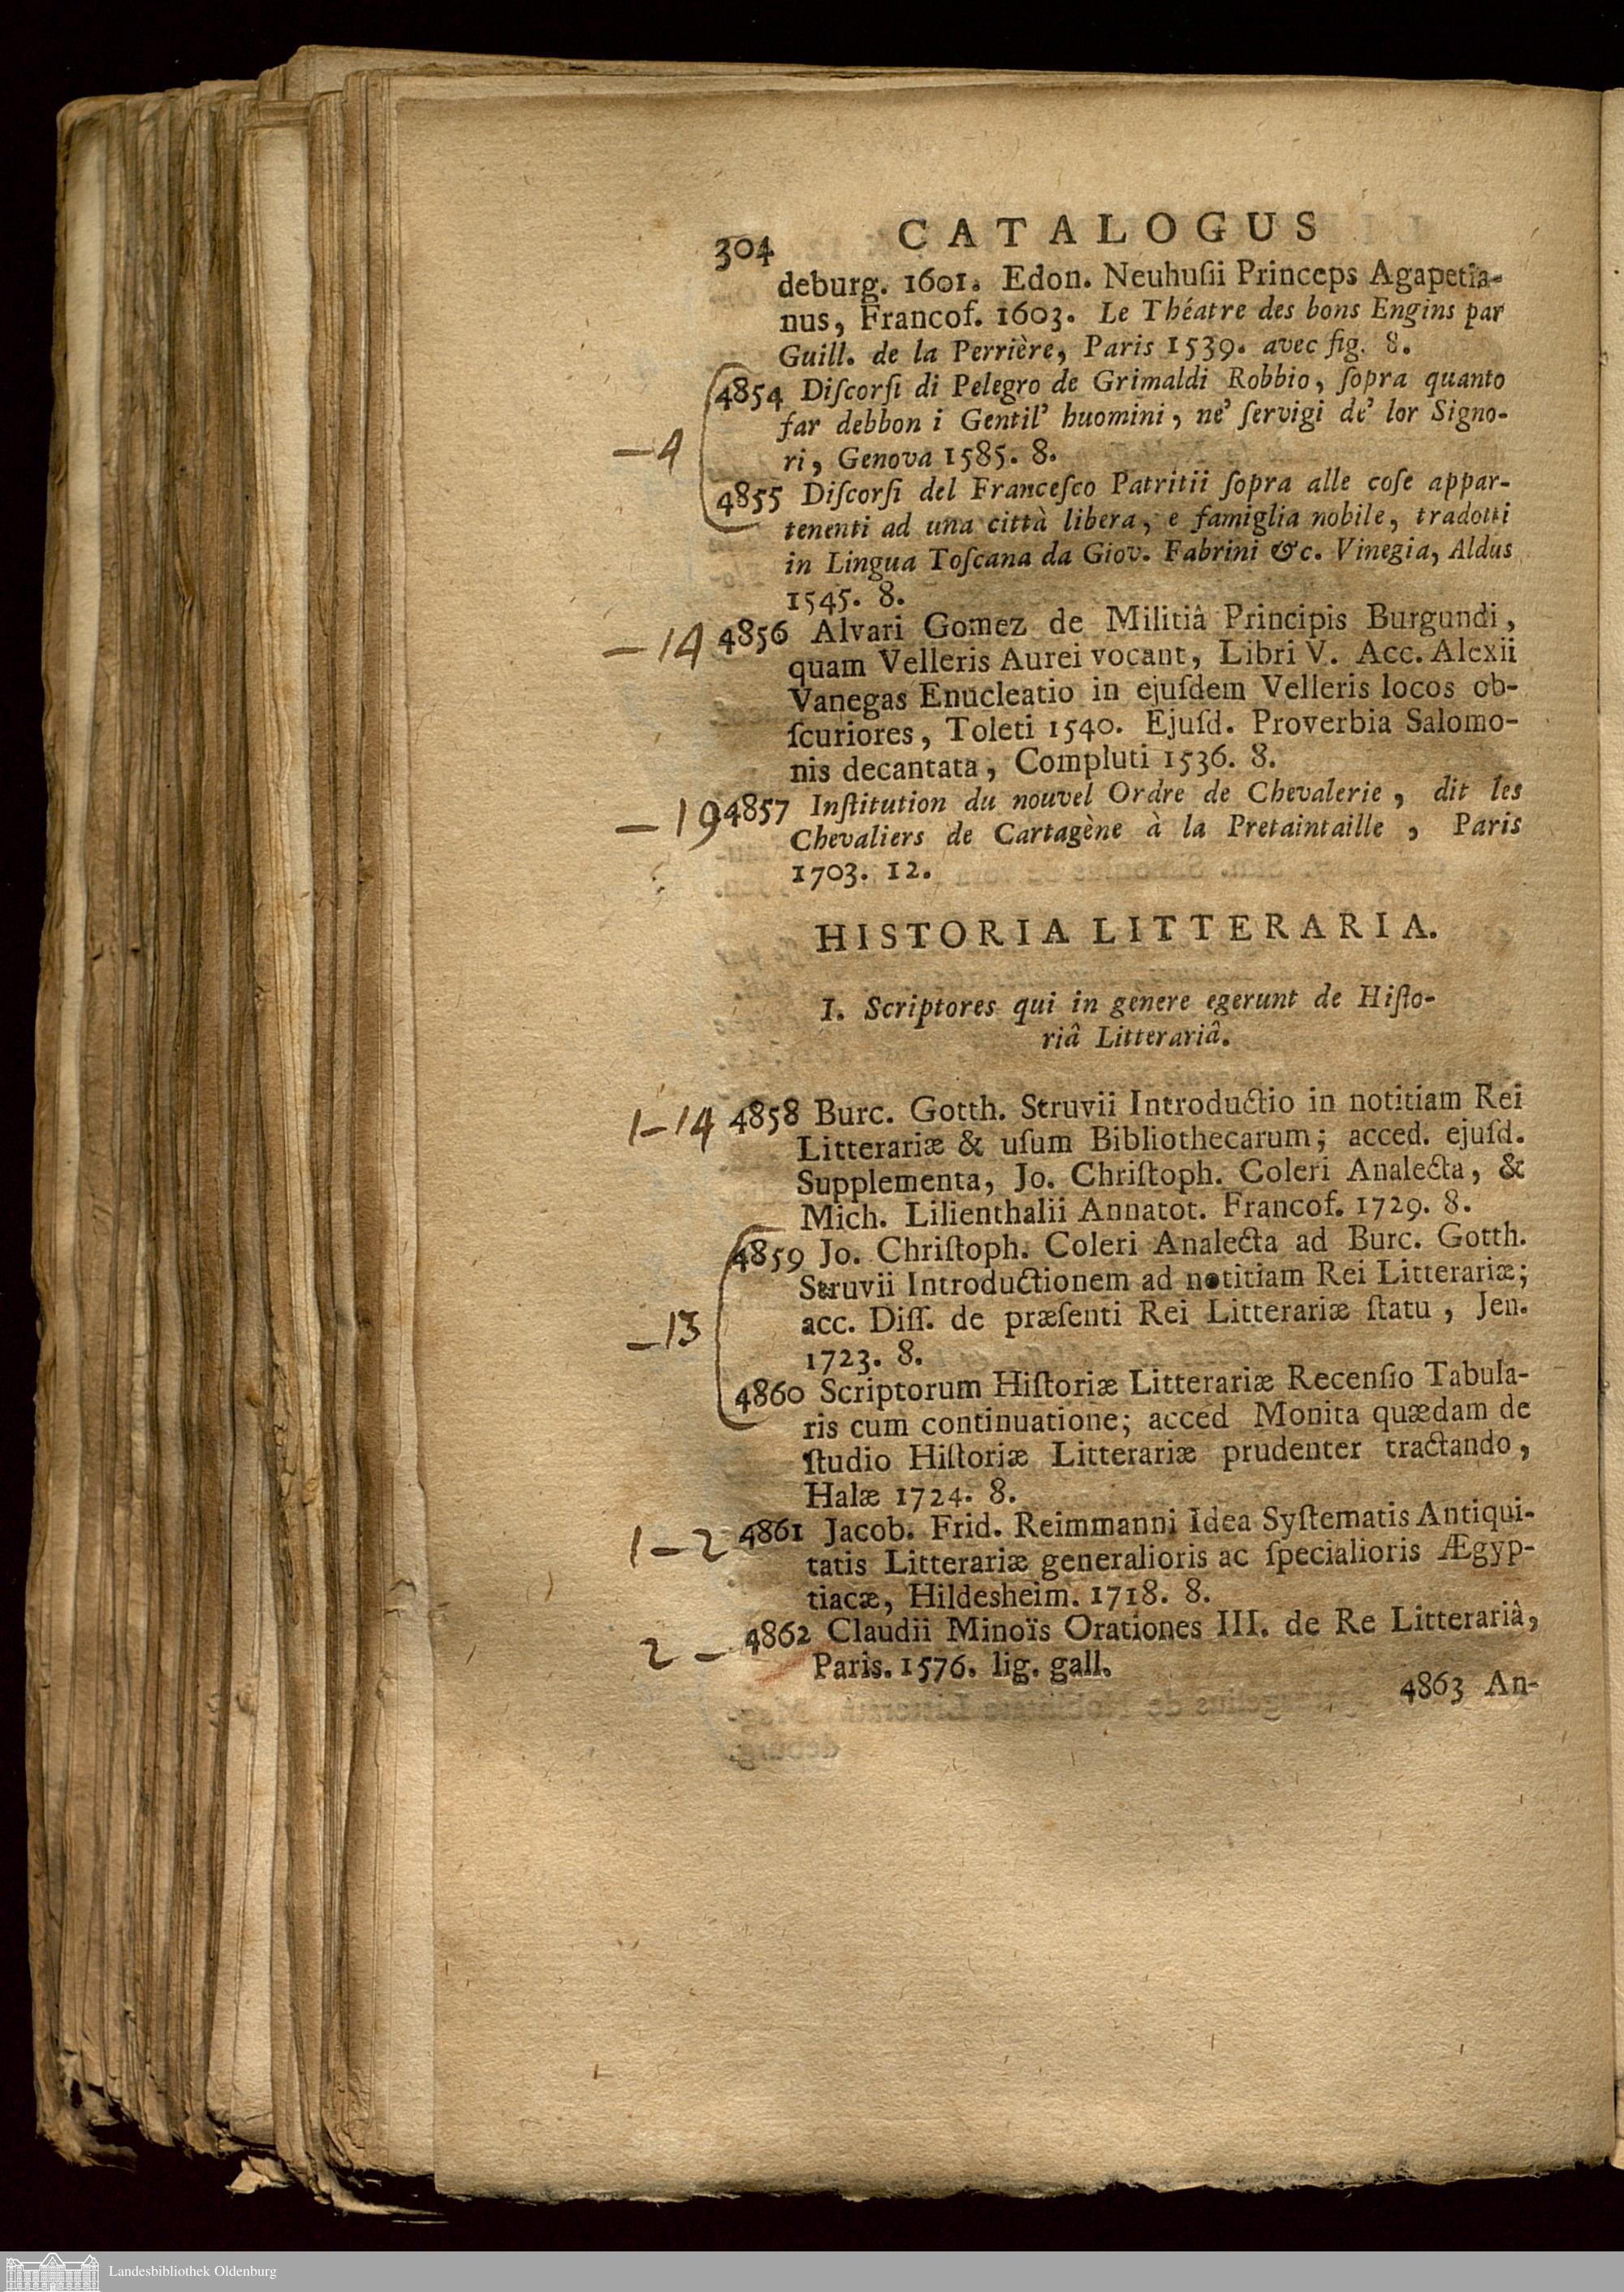 304 CATALOGUS
deburg. 1601. Edon. Neuhuſii Princeps Agapetia-
nus, Francof. 1603. Le Théatre des bons Engins par
Guill. de la Perrière, Paris 1539. avec fig. 8.
4854 Diſcorſi di Pelegro de Grimaldi Robbio, ſopra quanto
far debbon i Gentil' huomini, ne' ſervigi de' lor Signo-
— 4
ri, Genova 1585. 8.
4855 Diſcorſi del Franceſco Patritii ſopra alle coſe appar-
tenenti ad una città libera, e famiglia nobile, tradotti
in Lingua Toſcana da Giov. Fabrini &c. Vinegia, Aldus
1545. 8.
— 14 4856 Alvari Gomez de Militiâ Principis Burgundi,
quam Velleris Aurei vocant, Libri V. Acc. Alexii
Vanegas Enucleatio in ejuſdem Velleris locos ob-
ſcuriores, Toleti 1540. Ejuſd. Proverbia Salomo-
nis decantata, Compluti 1536. 8.
— 19 4857 Inſtitution du nouvel Ordre de Chevalerie, dit les
Chevaliers de Cartagène à la Pretaintaille, Paris
1703. 12.
HISTORIA LITTERARIA.
I. Scriptores qui in genere egerunt de Hiſto-
riâ Litterariâ.
1—14 4858 Burc. Gotth. Struvii Introductio in notitiam Rei
Litterariæ & uſum Bibliothecarum; acced. ejuſd.
Supplementa, Jo. Chriſtoph. Coleri Analecta, &
Mich. Lilienthalii Annatot. Francof. 1729. 8.
4859 Jo. Chriſtoph. Coleri Analecta ad Burc. Gotth.
Struvii Introductionem ad notitiam Rei Litterariæ;
— 13 acc. Diſſ. de præſenti Rei Litterariæ ſtatu, Jen.
1723. 8.
4860 Scriptorum Hiſtoriæ Litterariæ Recenſio Tabula-
ris cum continuatione; acced Monita quædam de
ſtudio Hiſtoriæ Litterariæ prudenter tractando,
Halæ 1724. 8.
1—2 4861 Jacob. Frid. Reimmanni Idea Syſtematis Antiqui-
tatis Litterariæ generalioris ac ſpecialioris Ægyp-
tiacæ, Hildesheim. 1718. 8.
2 — 4862 Claudii Minoïs Orationes III. de Re Litterariâ,
Paris. 1576. lig. gall.
4863 An-
Landesbibliothek Oldenburg